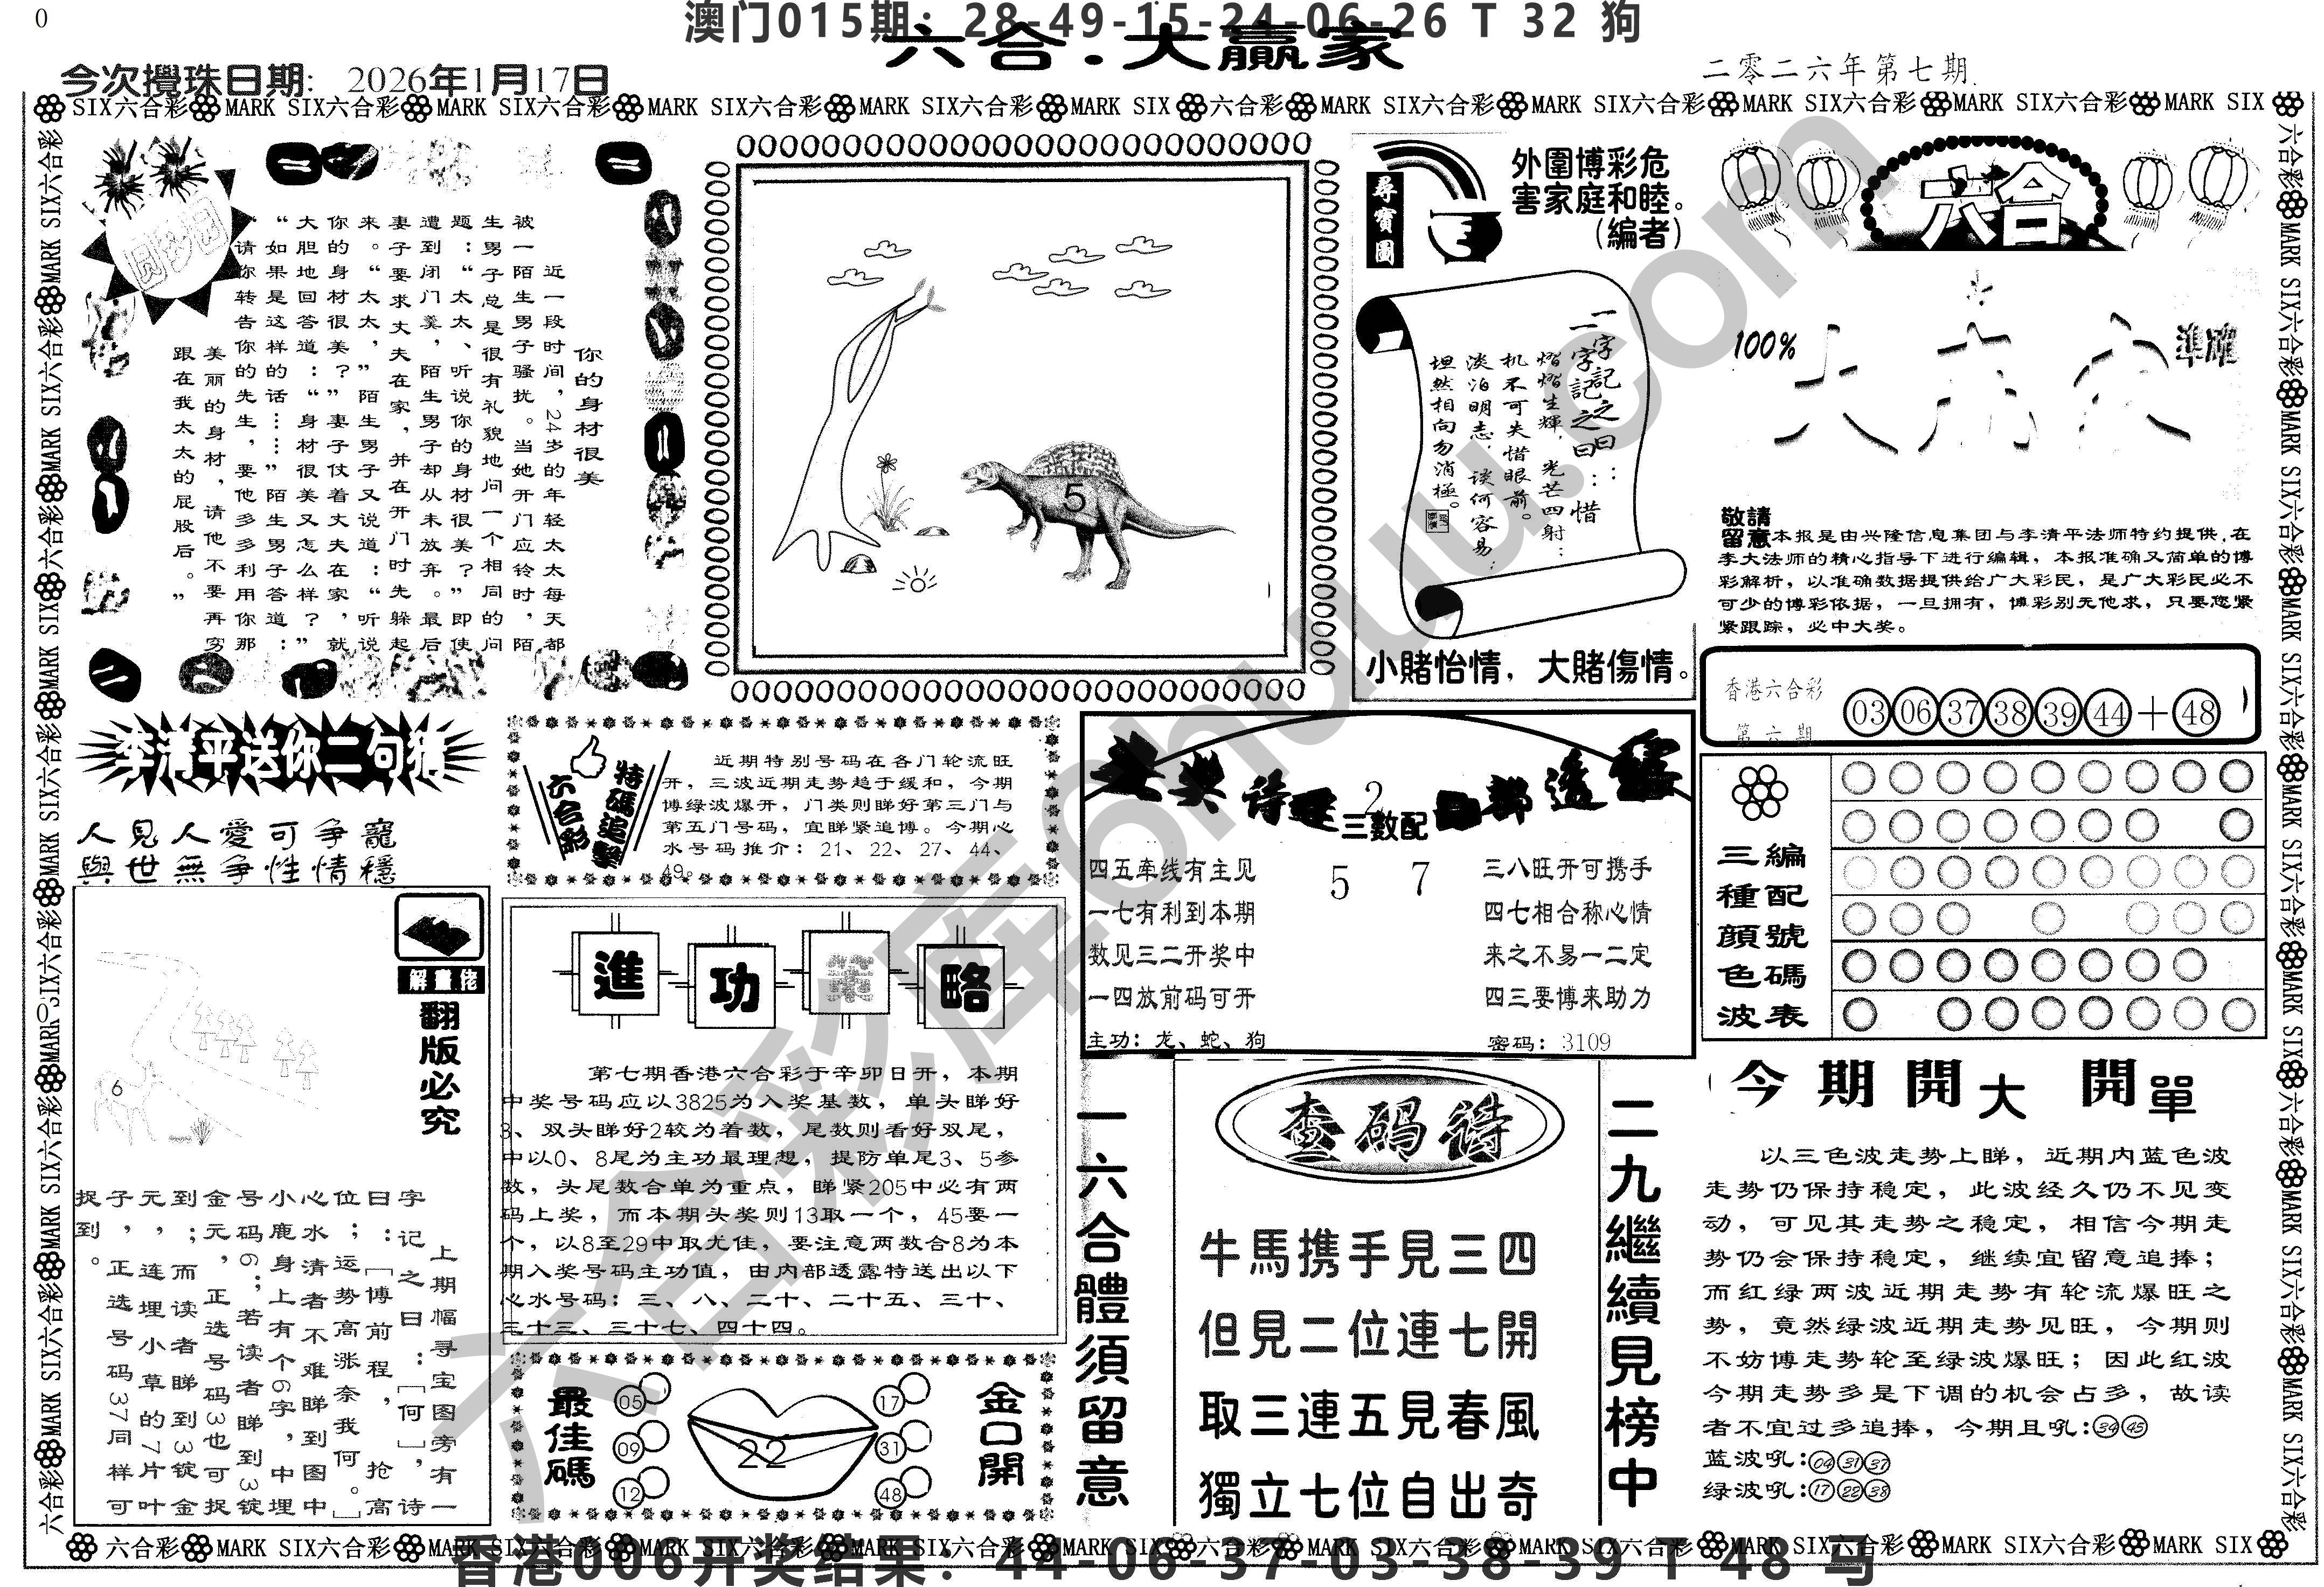 0
澳门015期：28-49-15-24-06-26 T 32 狗
六合.大赢家
今次攪珠日期: 2026年1月17日
二零二六年第七期
SIX六合彩 MARK SIX六合彩 MARK SIX六合彩 MARK SIX六合彩 MARK SIX六合彩 MARK SIX 六合彩 MARK SIX六合彩 MARK SIX六合彩 MARK SIX六合彩 MARK SIX六合彩 MARK SIX
你的身材很美
近一段时间，24岁的年轻太太每天都
被一陌生男子骚扰。当她开门应铃时，陌
生男子总是很有礼貌地问一个相同的问
题：“太太、听说你的身材很美？”即使
遭到闭门羹，陌生男子却从未放弃。最后
妻子要求丈夫在家，并在开门时先躲起
来。“太太，”陌生男子又说道：“听说
你的身材很美？”妻子仗着丈夫在家，就
大胆地回答道：“身材很美又怎么样？”
“如果是这样的话……”陌生男子答道：
“请你转告你的先生，要他多多利用你那
美丽的身材，请他不要再穷
跟在我太太的屁股后。”
5
尋寶圖
外圍博彩危
害家庭和睦。
(編者)
一字記之曰：惜
二字記之曰：
熠熠生輝，光芒四射；
机不可失惜眼前。
淡泊明志，谈何容易；
坦然相向勿消極。
小賭怡情，大賭傷情。
六合
100%
準確
敬請
留意本报是由兴隆信息集团与李清平法师特约提供,在
李大法师的精心指导下进行编辑，本报准确又简单的博
彩解析，以准确数据提供给广大彩民，是广大彩民必不
可少的博彩依据，一旦拥有，博彩别无他求，只要您紧
紧跟踪，必中大奖。
香港六合彩
第六期
03 06 37 38 39 44 + 48
李清平送你二句猜
人見人愛可争寵
與世無争性情穩
六合彩
特碼追擊
近期特别号码在各门轮流旺
开，三波近期走势趋于缓和，今期
博绿波爆开，门类则睇好第三门与
第五门号码，宜睇紧追博。今期心
水号码推介：21、22、27、44、
49。
三數配
2
5 7
四五牵线有主见
一七有利到本期
数见三二开奖中
一四放前码可开
主功：龙、蛇、狗
三八旺开可携手
四七相合称心情
来之不易一二定
四三要博来助力
密码：3109
三種顔色波
編配號碼表
6
解畫佬
翻版必究
上期幅寻宝图旁有一
字记之曰：[何]，诗
曰：[博前程，抢高
位；运势高涨奈我何。]
心水清者不难睇到图中
小鹿身上有个6字，中埋
号码6；若读者睇到3锭
金元，正选号码3也可捉
到；而读者睇到3锭金
元，连埋小草的7片叶
子，正选号码37同样可
捉到。
進功策略
第七期香港六合彩于辛卯日开，本期
中奖号码应以3825为入奖基数，单头睇好
3、双头睇好2较为着数，尾数则看好双尾，
中以0、8尾为主功最理想，提防单尾3、5参
数，头尾数合单为重点，睇紧205中必有两
码上奖，而本期头奖则13取一个，45要一
个，以8至29中取尤佳，要注意两数合8为本
期入奖号码主功值，由内部透露特送出以下
心水号码：三、八、二十、二十五、三十、
三十三、三十七、四十四。
最佳碼
05
09
12
22
17
31
48
金口開
一六合體須留意
查码诗
牛馬携手見三四
但見二位連七開
取三連五見春風
獨立七位自出奇
二九繼續見榜中
今期開大 開單
以三色波走势上睇，近期内蓝色波
走势仍保持稳定，此波经久仍不见变
动，可见其走势之稳定，相信今期走
势仍会保持稳定，继续宜留意追捧；
而红绿两波近期走势有轮流爆旺之
势，竟然绿波近期走势见旺，今期则
不妨博走势轮至绿波爆旺；因此红波
今期走势多是下调的机会占多，故读
者不宜过多追捧，今期且吼:34 45
蓝波吼:04 31 37
绿波吼:17 22 38
六合彩 MARK SIX六合彩 MARK SIX六合彩 MARK SIX六合彩 MARK SIX六合彩 MARK SIX 六合彩 MARK SIX六合彩 MARK SIX六合彩 MARK SIX六合彩 MARK SIX
香港006开奖结果：44-06-37-03-38-39 T 48 马
六合彩库6huu.com